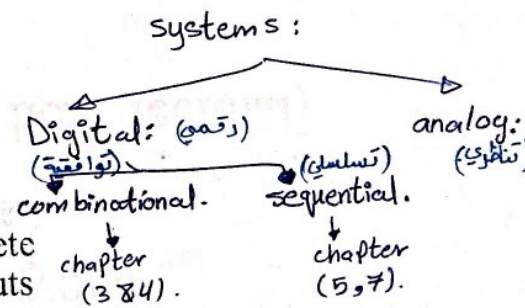 systems :
Digital: (رقمي)
analog:
(تناظري)
(توافقية)
(تسلسلي)
combinational.
sequential.
ete
chapter
(3 & 4) .
chapter
(5 , 7) .
uts